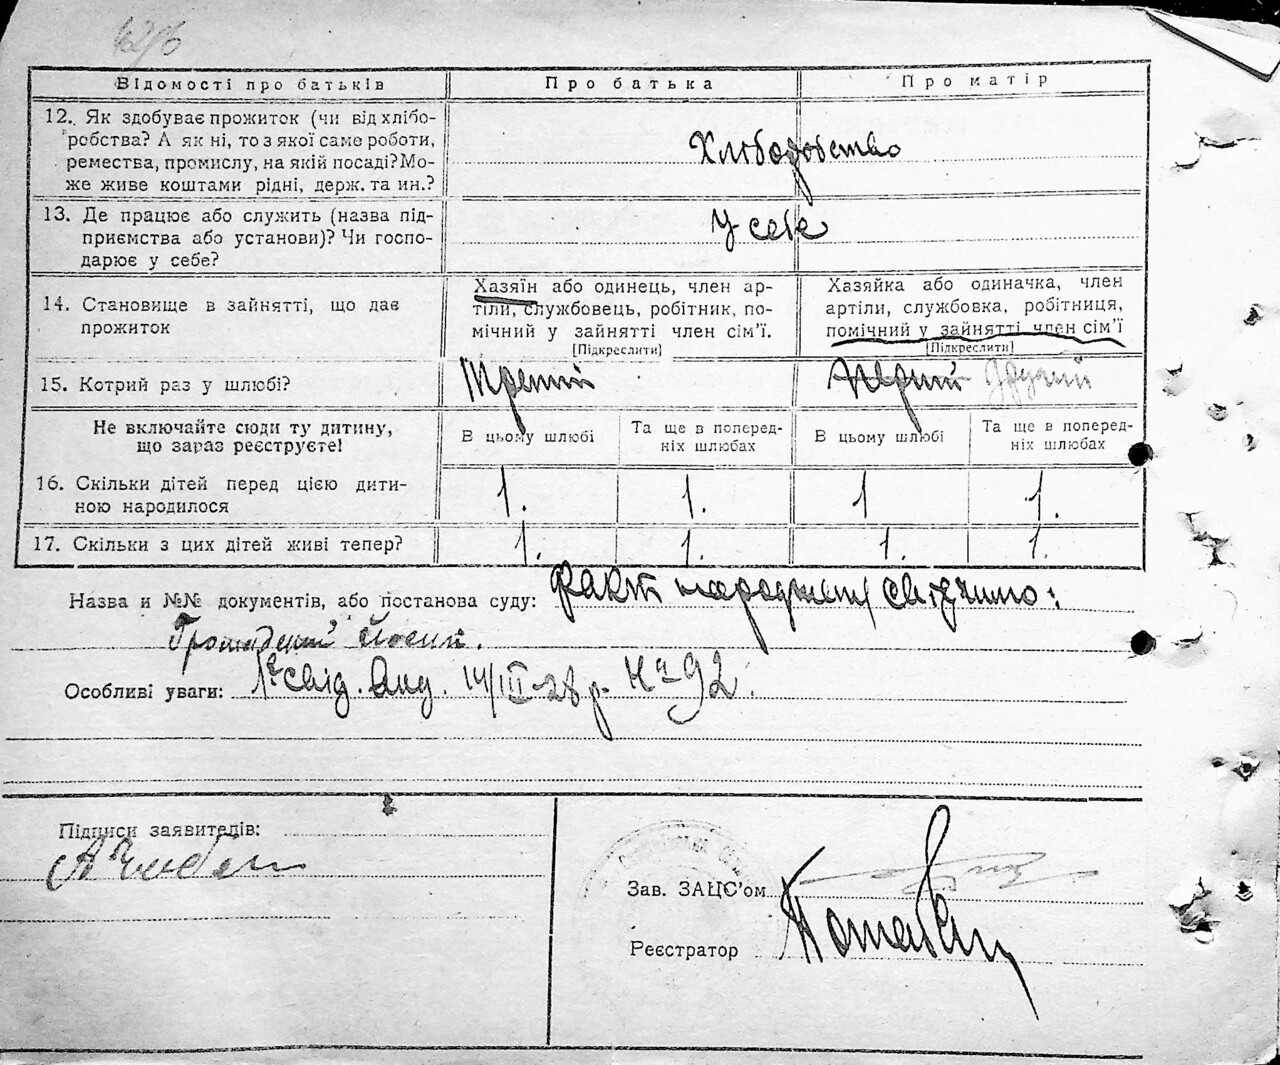 Відомості про батьків Про батька Про матір
12. Як здобуває прожиток (чи від хлібо-
робства? А як ні, то з якої саме роботи,
ремества, промислу, на якій посаді? Мо-
же живе коштами рідні, держ. та ин.?
Хлиборобство
13. Де працює або служить (назва під-
приємства або установи)? Чи госпо-
дарює у себе?
У себе
14. Становище в зайнятті, що дає
прожиток
Хазяїн або одинець, член ар-
тіли, службовець, робітник, по-
мічний у зайнятті член сім'ї.
[Підкреслити]
Хазяйка або одиначка, член
артіли, службовка, робітниця,
помічний у зайнятті член сім'ї
[Підкреслити]
15. Котрий раз у шлюбі? Третій Перший Другий
Не включайте сюди ту дитину,
що зараз реєструєте!
В цьому шлюбі
Та ще в поперед-
ніх шлюбах
В цьому шлюбі
Та ще в поперед-
ніх шлюбах
16. Скільки дітей перед цією дити-
ною народилося
1. 1. 1 1.
17. Скільки з цих дітей живі тепер? 1. 1. 1. 1.
Назва и №№ документів, або постанова суду: Факт народження свідчимо:
Особливі уваги: свід. вид. 14/III-28 р. № 92.
Підписи заявителів:
Зав. ЗАЦС'ом
Реєстратор